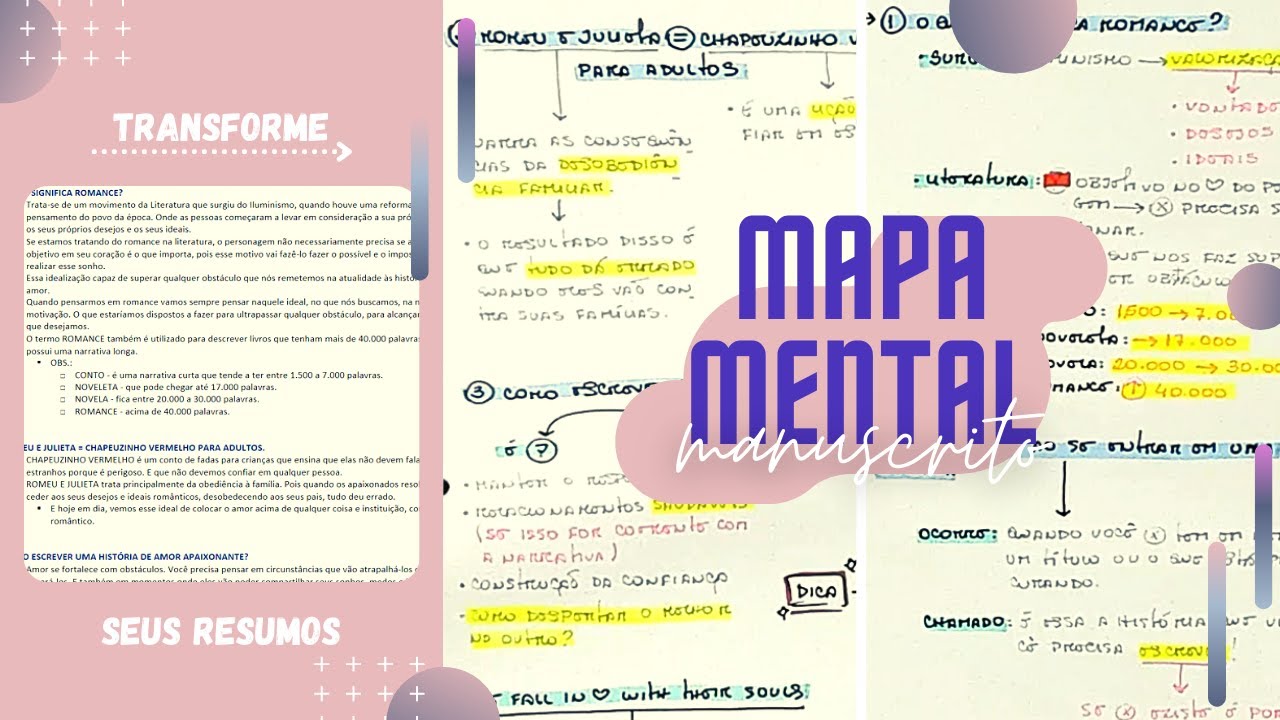 TRANSFORME
SIGNIFICA ROMANCE?
Trata-se de um movimento da Literatura que surgiu do Iluminismo, quando houve uma reforma
pensamento do povo da época. Onde as pessoas começaram a levar em consideração a sua pró
os seus próprios desejos e os seus ideais.
Se estamos tratando do romance na literatura, o personagem não necessariamente precisa se a
objetivo em seu coração é o que importa, pois esse motivo vai fazê-lo fazer o possível e o impos
realizar esse sonho.
Essa idealização capaz de superar qualquer obstáculo que nós remetemos na atualidade às histór
amor.
Quando pensarmos em romance vamos sempre pensar naquele ideal, no que nós buscamos, na n
motivação. O que estaríamos dispostos a fazer para ultrapassar qualquer obstáculo, para alcançar
que desejamos.
O termo ROMANCE também é utilizado para descrever livros que tenham mais de 40.000 palavras
possui uma narrativa longa.
• OBS.:
CONTO - é uma narrativa curta que tende a ter entre 1.500 a 7.000 palavras.
NOVELETA - que pode chegar até 17.000 palavras.
NOVELA - fica entre 20.000 a 30.000 palavras.
ROMANCE - acima de 40.000 palavras.
EU E JULIETA = CHAPEUZINHO VERMELHO PARA ADULTOS.
CHAPEUZINHO VERMELHO é um conto de fadas para crianças que ensina que elas não devem fala
estranhos porque é perigoso. E que não devemos confiar em qualquer pessoa.
ROMEU E JULIETA trata principalmente da obediência à família. Pois quando os apaixonados reso
ceder aos seus desejos e ideais românticos, desobedecendo aos seus pais, tudo deu errado.
• E hoje em dia, vemos esse ideal de colocar o amor acima de qualquer coisa e instituição, co
romântico.
O ESCREVER UMA HISTÓRIA DE AMOR APAIXONANTE?
Amor se fortalece com obstáculos. Você precisa pensar em circunstâncias que vão atrapalhá-los
SEUS RESUMOS
ROMEU E JULIETA = CHAPEUZINHO V
PARA ADULTOS
• É UMA LIÇÃO
FIAR EM ES
NARRA AS CONSEQUÊN
CIAS DA DESOBEDIÊN
CIA FAMILIAR.
• O RESULTADO DISSO É
QUE TUDO DÁ ERRADO
QUANDO ELES VÃO CON
TRA SUAS FAMÍLIAS.
③ COMO ESCREVE
É ?
• MANTER O RESP
• RELACIONAMENTOS SAUDÁVEIS
(SE ISSO FOR COERENTE COM
A NARRATIVA)
• CONSTRUÇÃO DA CONFIANÇA
• COMO DESPERTAR O MELHOR
NO OUTRO?
DICA
FALL IN ♡ WITH THEIR SOULS
① O A ROMANCE?
• SURG UNISMO → VALORIZAÇÃ
• VONTADE
• DESEJOS
• IDEAIS
• LITERATURA: OBJETIVO NO ♡ DO PE
GEM → Ⓧ PRECISA S
ONAR.
QUE NOS FAZ SUP
ER OBSTÁCULO
O: 1.500 → 7.00
NOVELETA: → 17.000
NOVELA: 20.000 → 30.00
MANCE: ↑ 40.000
MAPA
MENTAL
manuscrito
CO SE ENTRAR EM UM
OCORRE: QUANDO VOCÊ Ⓧ TEM EM M
UM TÍTULO OU O QUE ESTÁ P
CURANDO.
CHAMADO: É ESSA A HISTÓRIA QUE V
CÊ PRECISA ESCREVER!
SE Ⓧ EXISTE É POR